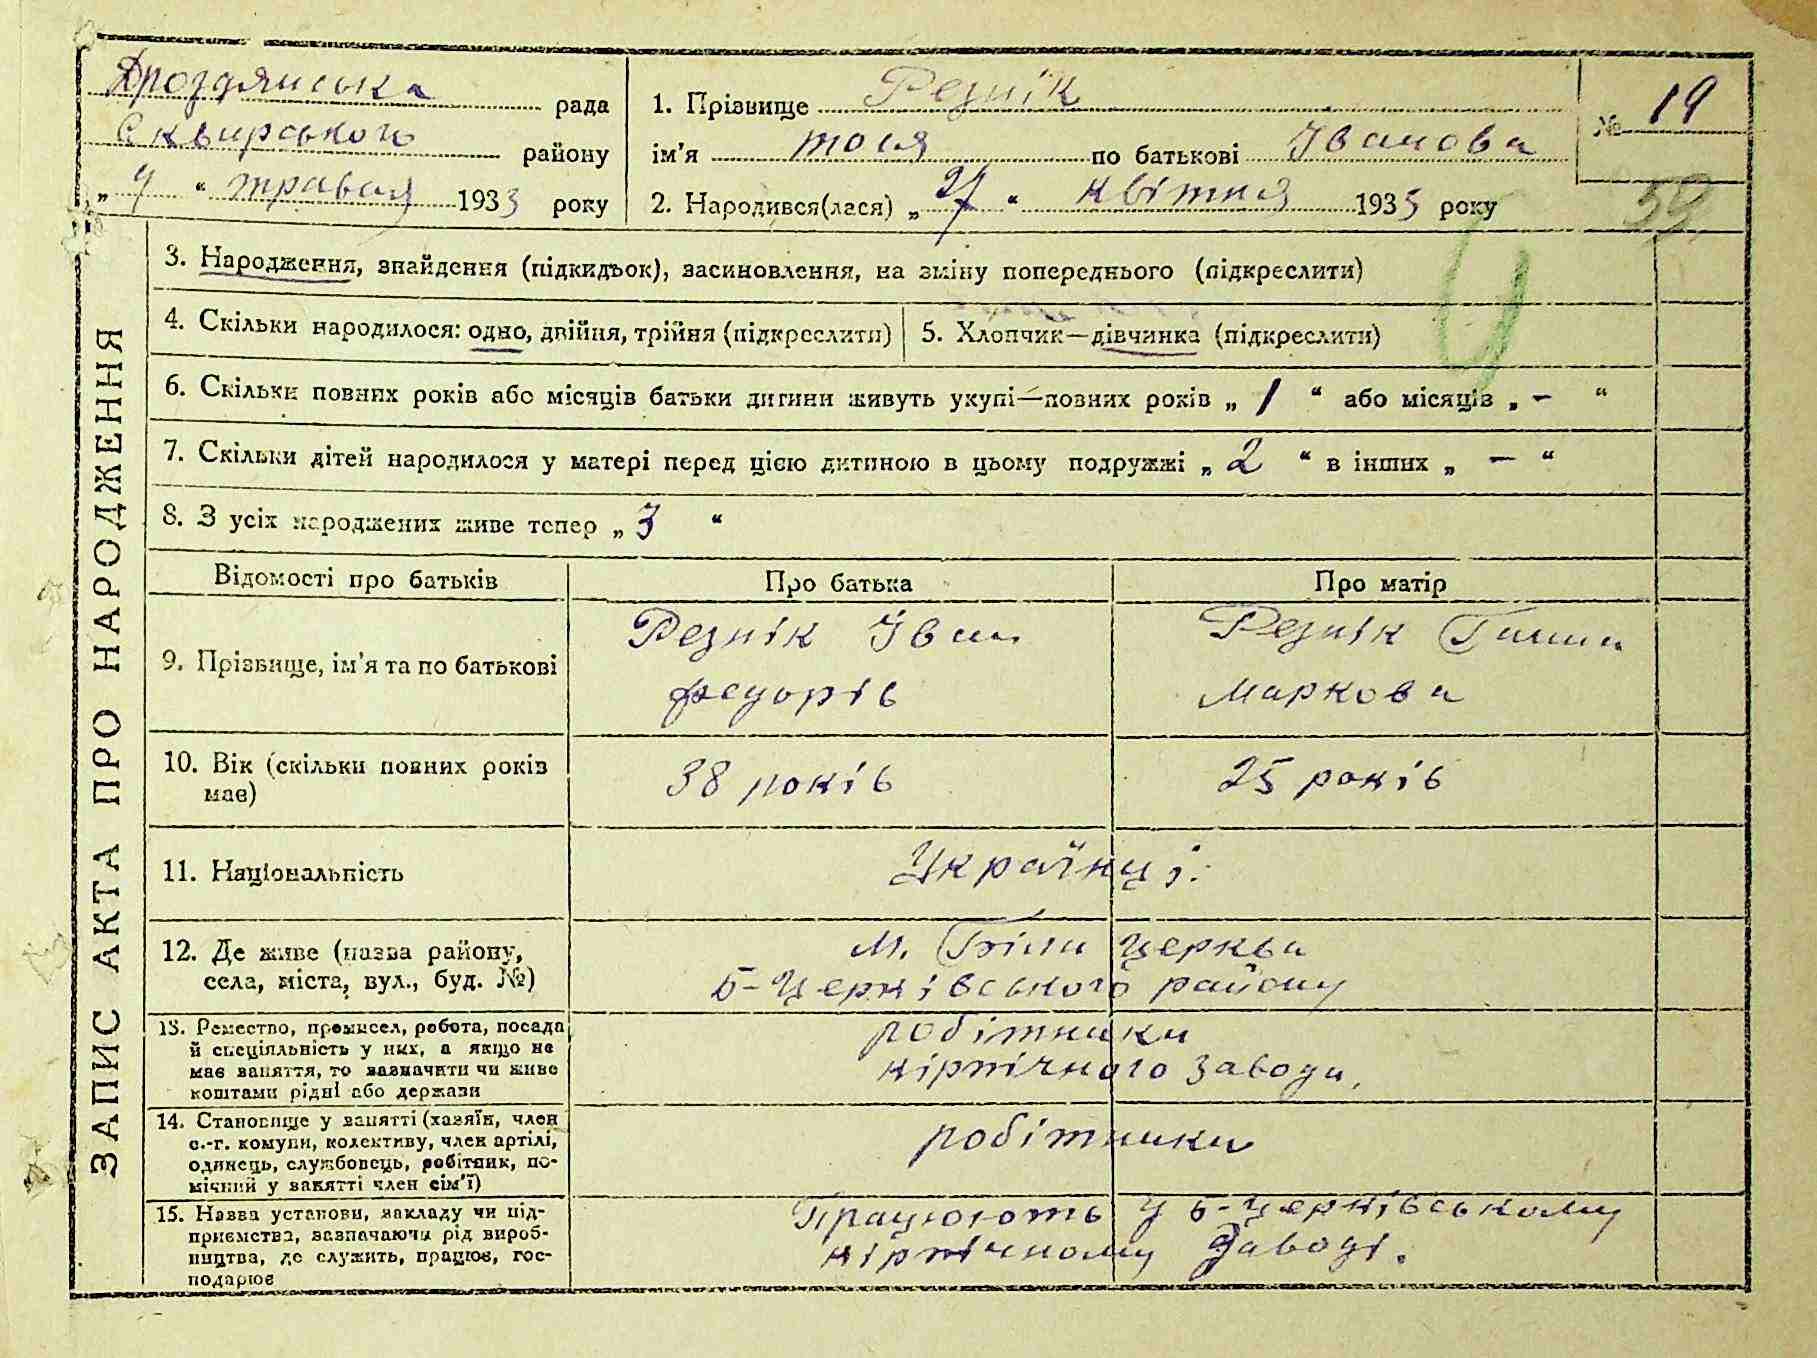 Дроздянська рада
Сквирського району
„ 4 “ травня 1933 року
1. Прізвище Резнік
ім’я тося по батькові Іванова
2. Народився(лася) „ 27 “ квітня 1933 року
№ 19
59
ЗАПИС АКТА ПРО НАРОДЖЕННЯ
3. Народження, знайдення (підкидьок), засиновлення, на зміну попереднього (підкреслити)
4. Скільки народилося: одно, двійня, трійня (підкреслити)
5. Хлопчик—дівчинка (підкреслити)
6. Скільки повних років або місяців батьки дитини живуть укупі—повних років „ 1 “ або місяців „ – “
7. Скільки дітей народилося у матері перед цією дитиною в цьому подружжі „ 2 “ в інших „ – “
8. З усіх народжених живе тепер „ 3 “
Відомості про батьків
Про батька
Про матір
9. Прізвище, ім’я та по батькові
Резнік Іван
федорів
Резнік Ганна
маркова
10. Вік (скільки повних років
має)
38 років
25 років
11. Національність
Українці.
12. Де живе (назва району,
села, міста, вул., буд. №)
м. Біла церква
б-церківського району
13. Ремество, промисел, робота, посада
й спеціяльність у них, а якщо не
має заняття, то зазначити чи живе
коштами рідні або держави
робітники
кірпічного заводу,
14. Становище у занятті (хазяїн, член
с.-г. комуни, колективу, член артілі,
одинець, службовець, робітник, по-
мічний у занятті член сім’ї)
робітники
15. Назва установи, закладу чи під-
приємства, зазначаючи рід вироб-
ництва, де служить, працює, гос-
подарює
Працюють у б-церківському
кірпічному Заводі.